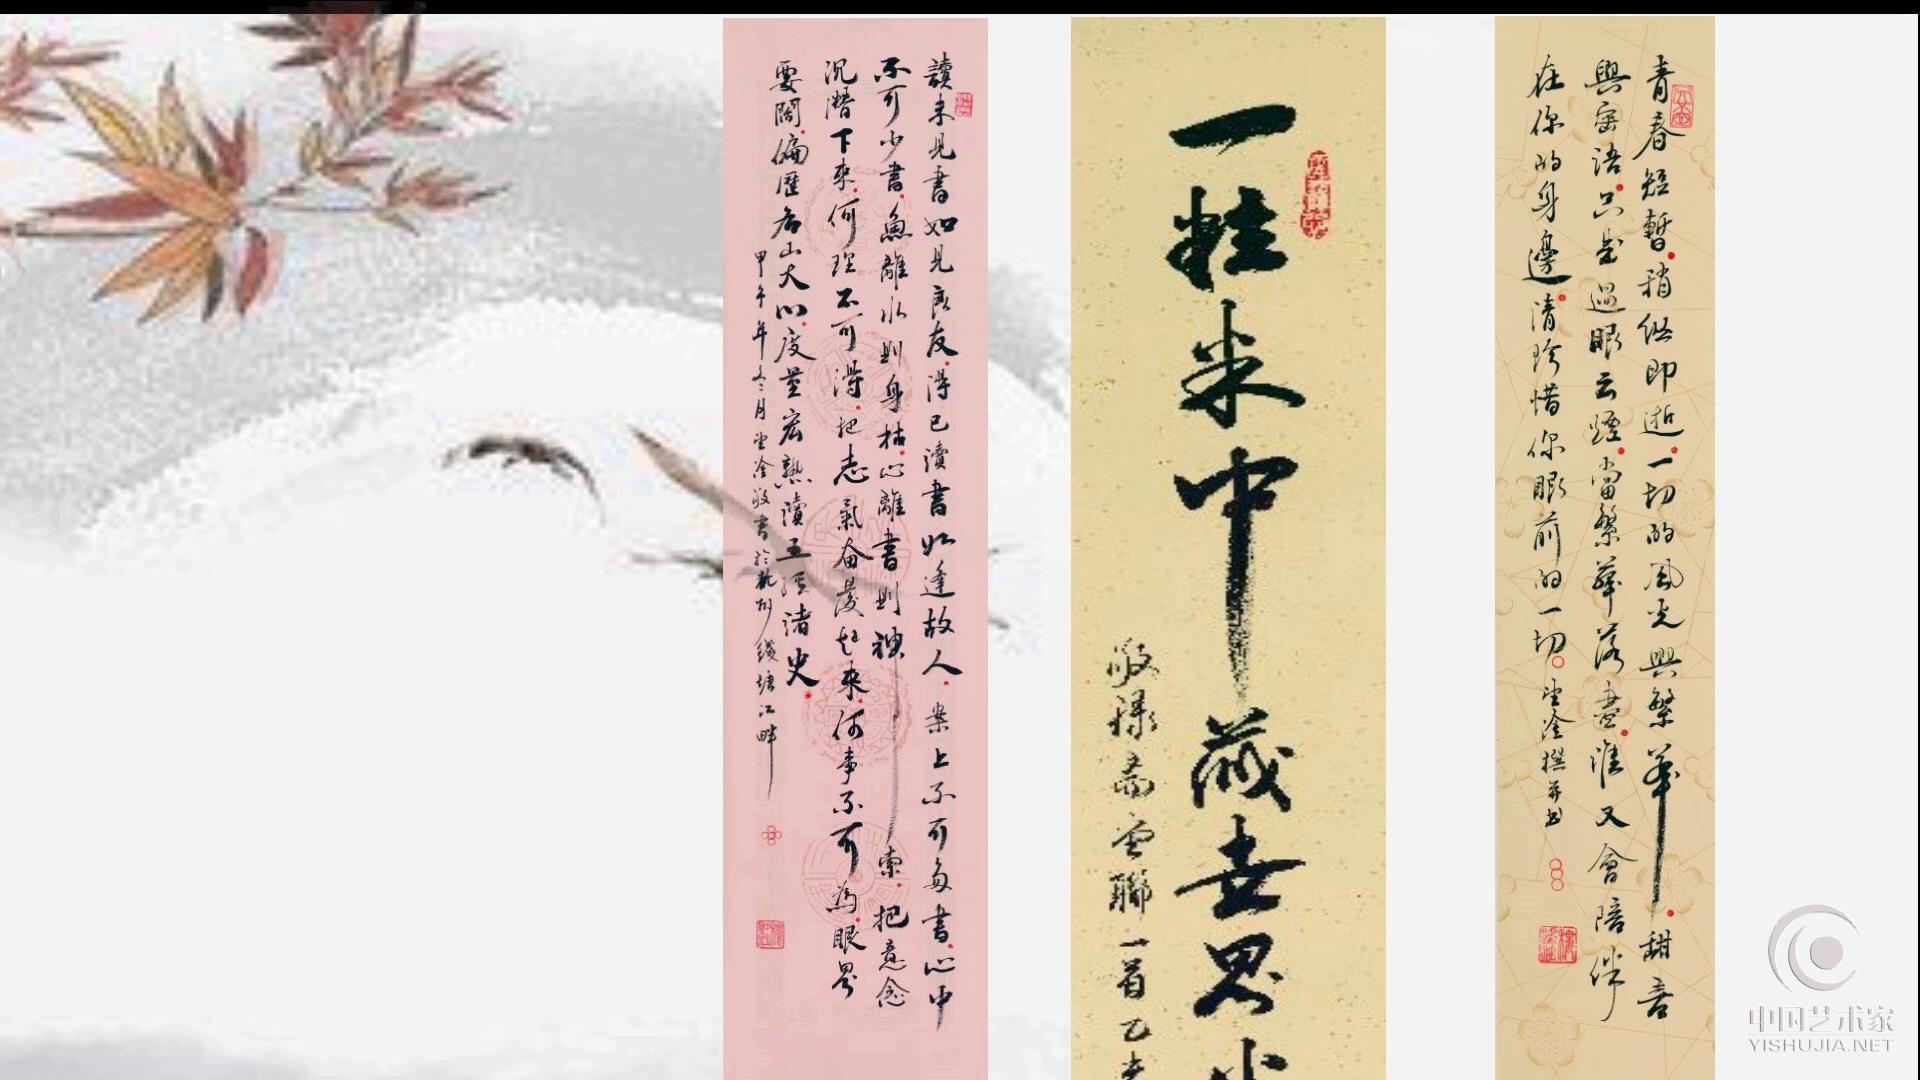 讀未見書如見良友得已讀書如逢故人案上不可多書心中
不可少書魚離水則身枯心離書則神索把意念
沉潛下來何理不可得把志氣奮發起來何事不可為眼界
要闊徧歷名山大川度量宏熟讀五經諸史
甲午年冬月敬書於杭州錢塘江畔
一粒米中藏世界
敬錄齋堂聯一首乙未
青春短暫稍縱即逝一切的風光與繁華甜言
與蜜語只是過眼云煙當繁華落盡誰又會陪伴
在你的身邊請珍惜你眼前的一切撰并書
中国艺术家
YISHUJIA.NET